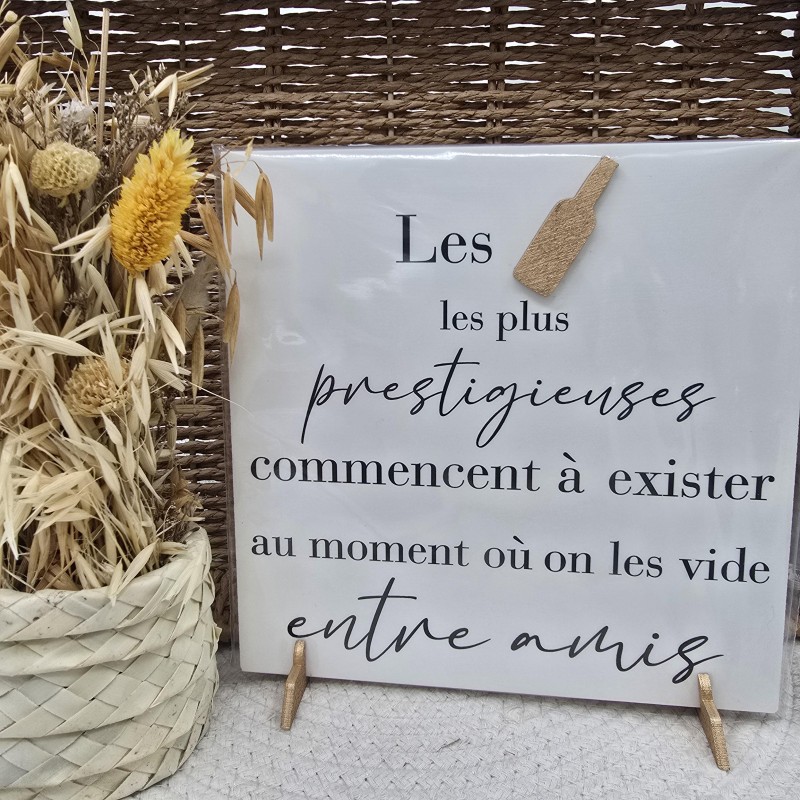 Les
les plus
prestigieuses
commencent à exister
au moment où on les vide
entre amis